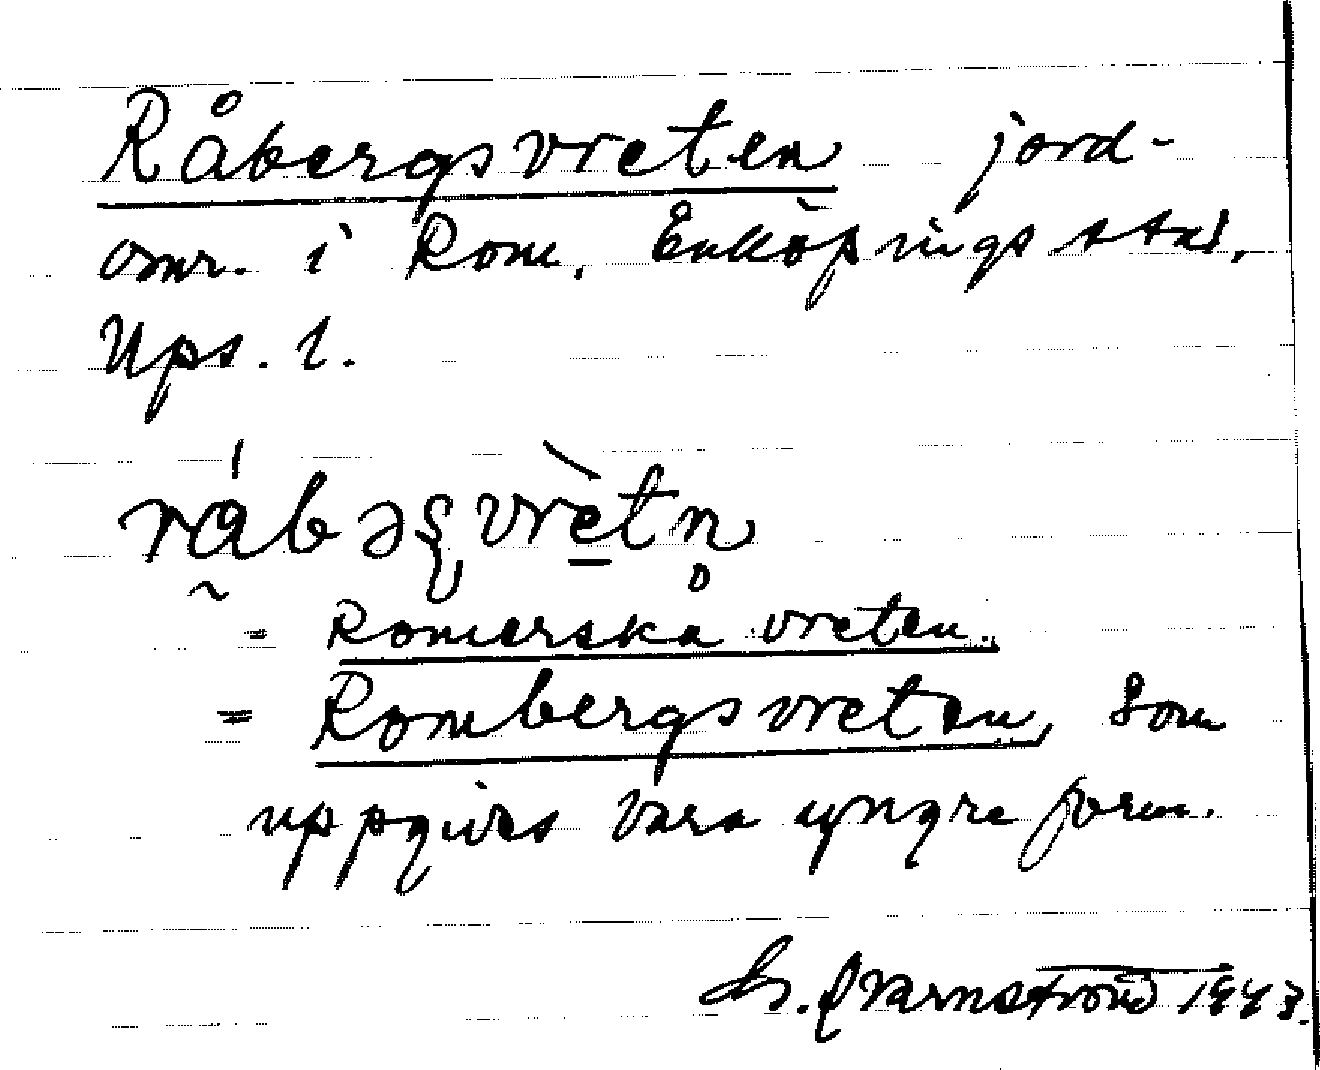 Råbergsvreten jord-
omr. i Rom, Enköpings stad,
Ups. l.
rábəʂvrètn̥
= Romerska vreten.
= Rombergsvreten, som
uppgives vara yngre form.
Qvarnström 1943.